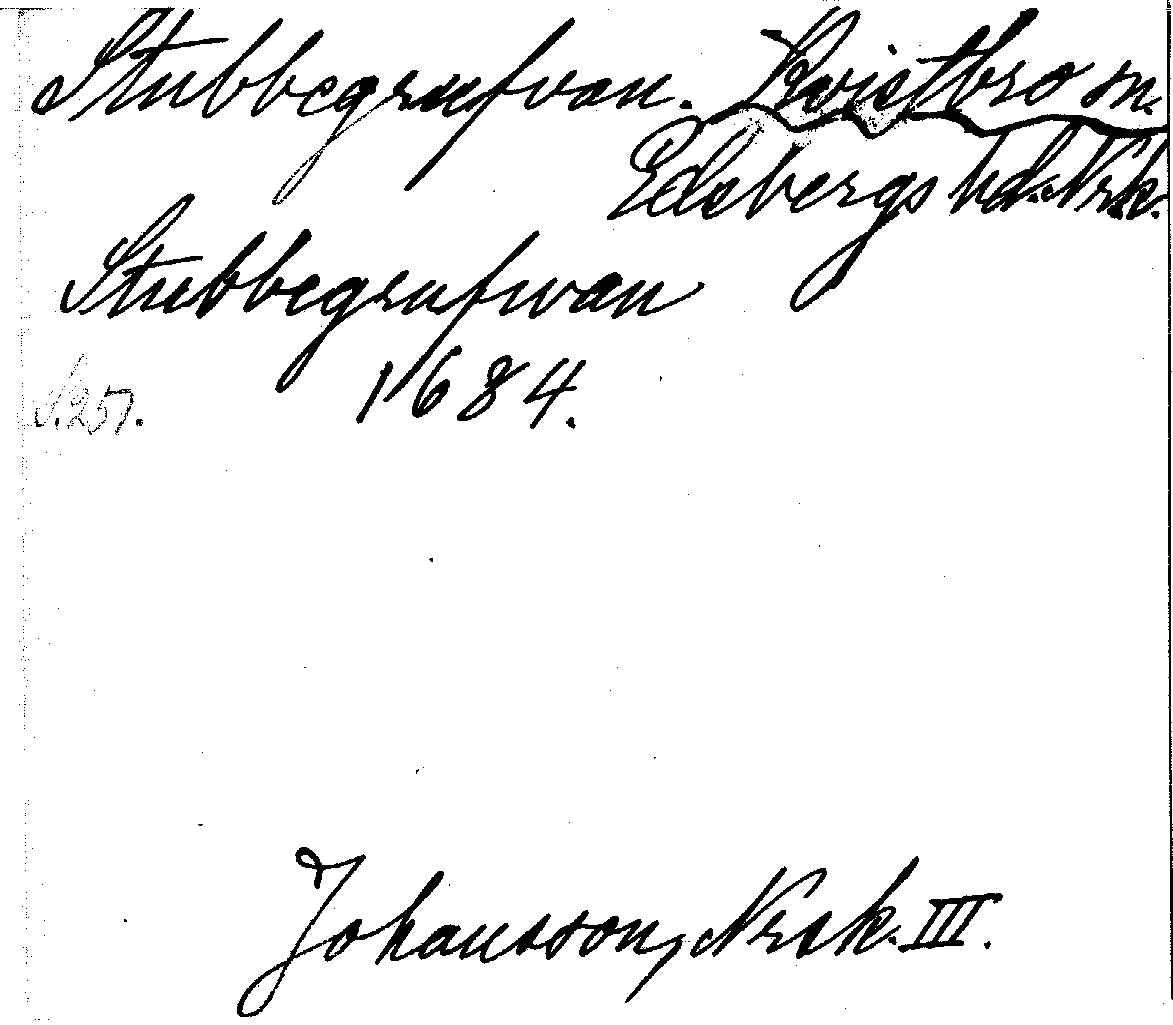 Stubbegrufvan. Kvistbro sn.
Edsbergs hd. Nrk.
Stubbegrufwan
S. 257. 1684.
Johansson, Nrsk. III.